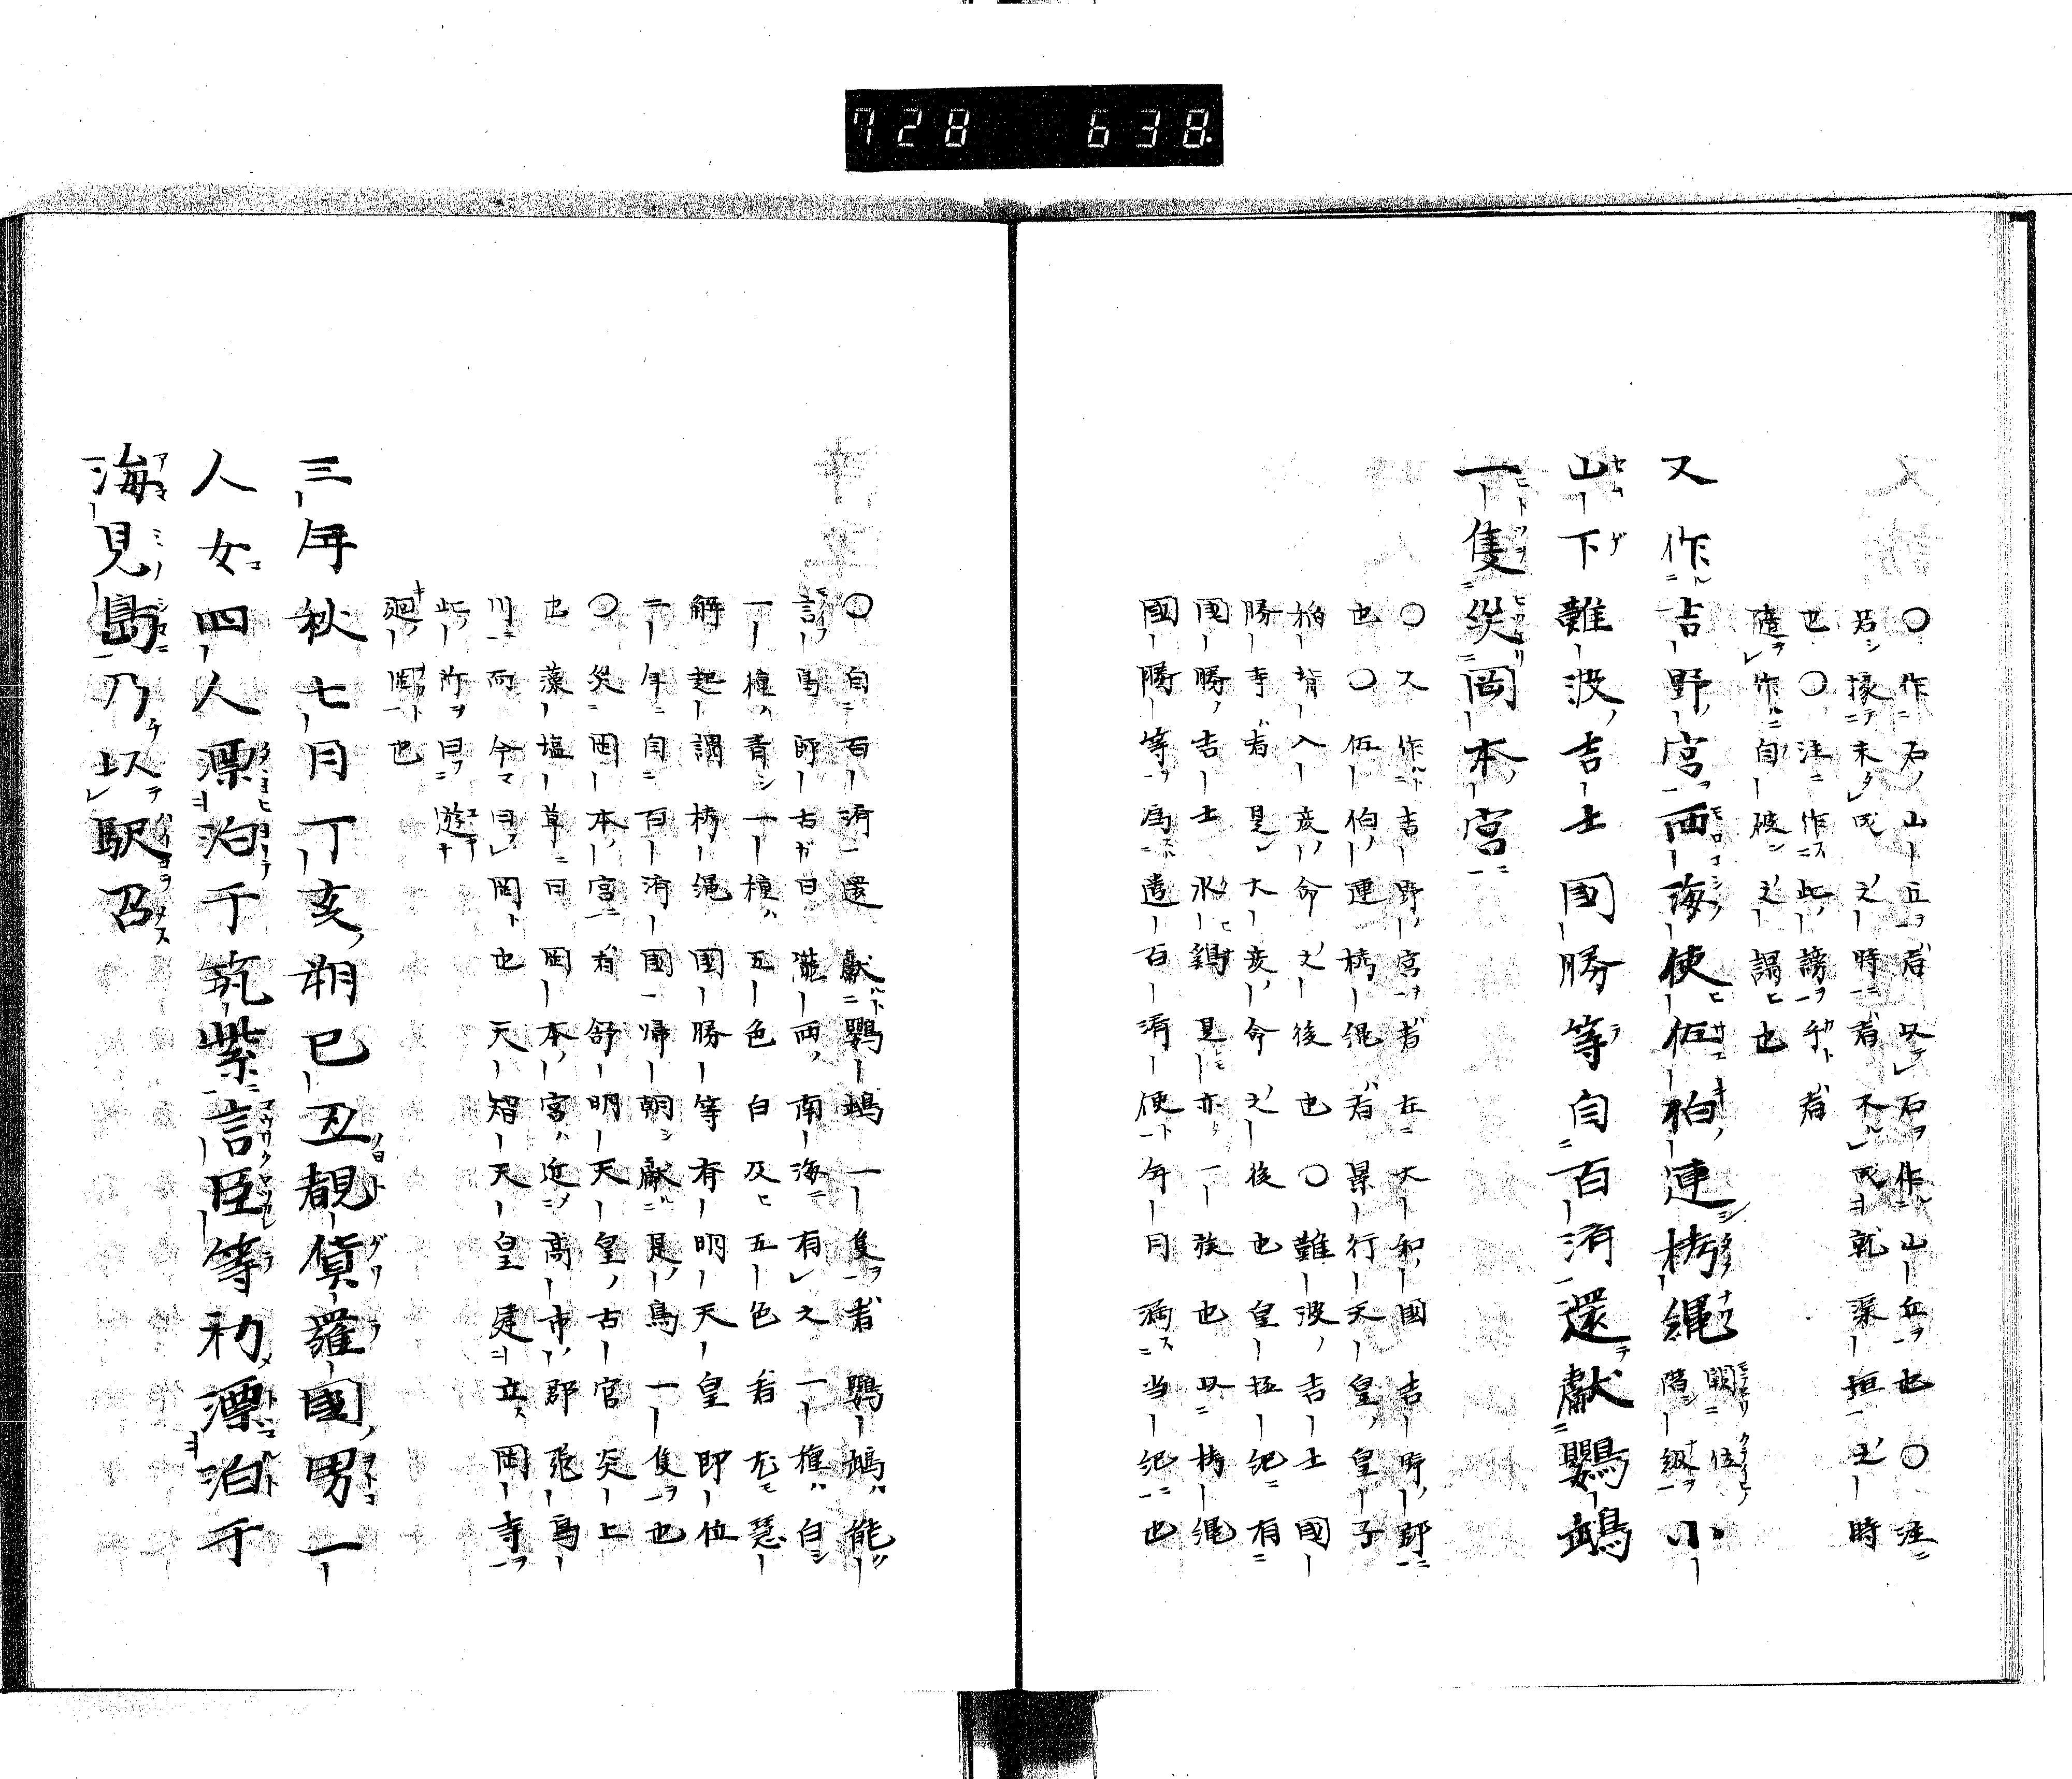 728 638.
〇作石山丘者以石作山丘也〇注
若據未成之時者不成就渠垣之時
也〇注作此謗乎者
隨作自破之謂也
又作吉野宮西海使佐伯連栲縄闕位階級小
山下難波吉士國勝等自百済還獻鸚鵡
一隻災岡本宮
〇又作吉野宮者在大和國吉野郡
也〇佐伯連栲縄者景行天皇皇子
稲背入彦命之後也〇難波吉士國
勝等者是大彦命之後也皇極紀有
國勝吉士水鶏是亦一族也以栲縄
國勝等為遣百済使年月滿当紀也
〇自百済還獻鸚鵡一隻者鸚鵡能
言鳥師古曰瀧西南海有之一種白
一種青一種五色白及五色者尤慧
解起謂栲縄國勝等有明天皇即位
二年自百済國帰朝獻是鳥一隻也
〇災岡本宮者舒明天皇古宮災上
也藻塩草曰岡本宮近高市郡飛鳥
川而今曰岡也天智天皇建立岡寺
此所曰遊
廻岡也
三年秋七月丁亥朔己丑覩貨羅國男一
人女四人漂泊于筑紫言臣等初漂泊于
海見島乃以駅召